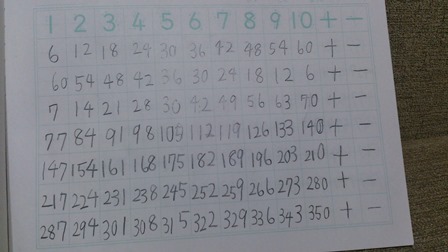 1 2 3 4 5 6 7 8 9 10 + −
6 12 18 24 30 36 42 48 54 60 + −
60 54 48 42 36 30 24 18 12 6 + −
7 14 21 28 30 42 49 56 63 70 + −
77 84 91 98 105 112 119 126 133 140 + −
147 154 161 168 175 182 189 196 203 210 + −
217 224 231 238 245 252 259 266 273 280 + −
287 294 301 308 315 322 329 336 343 350 + −